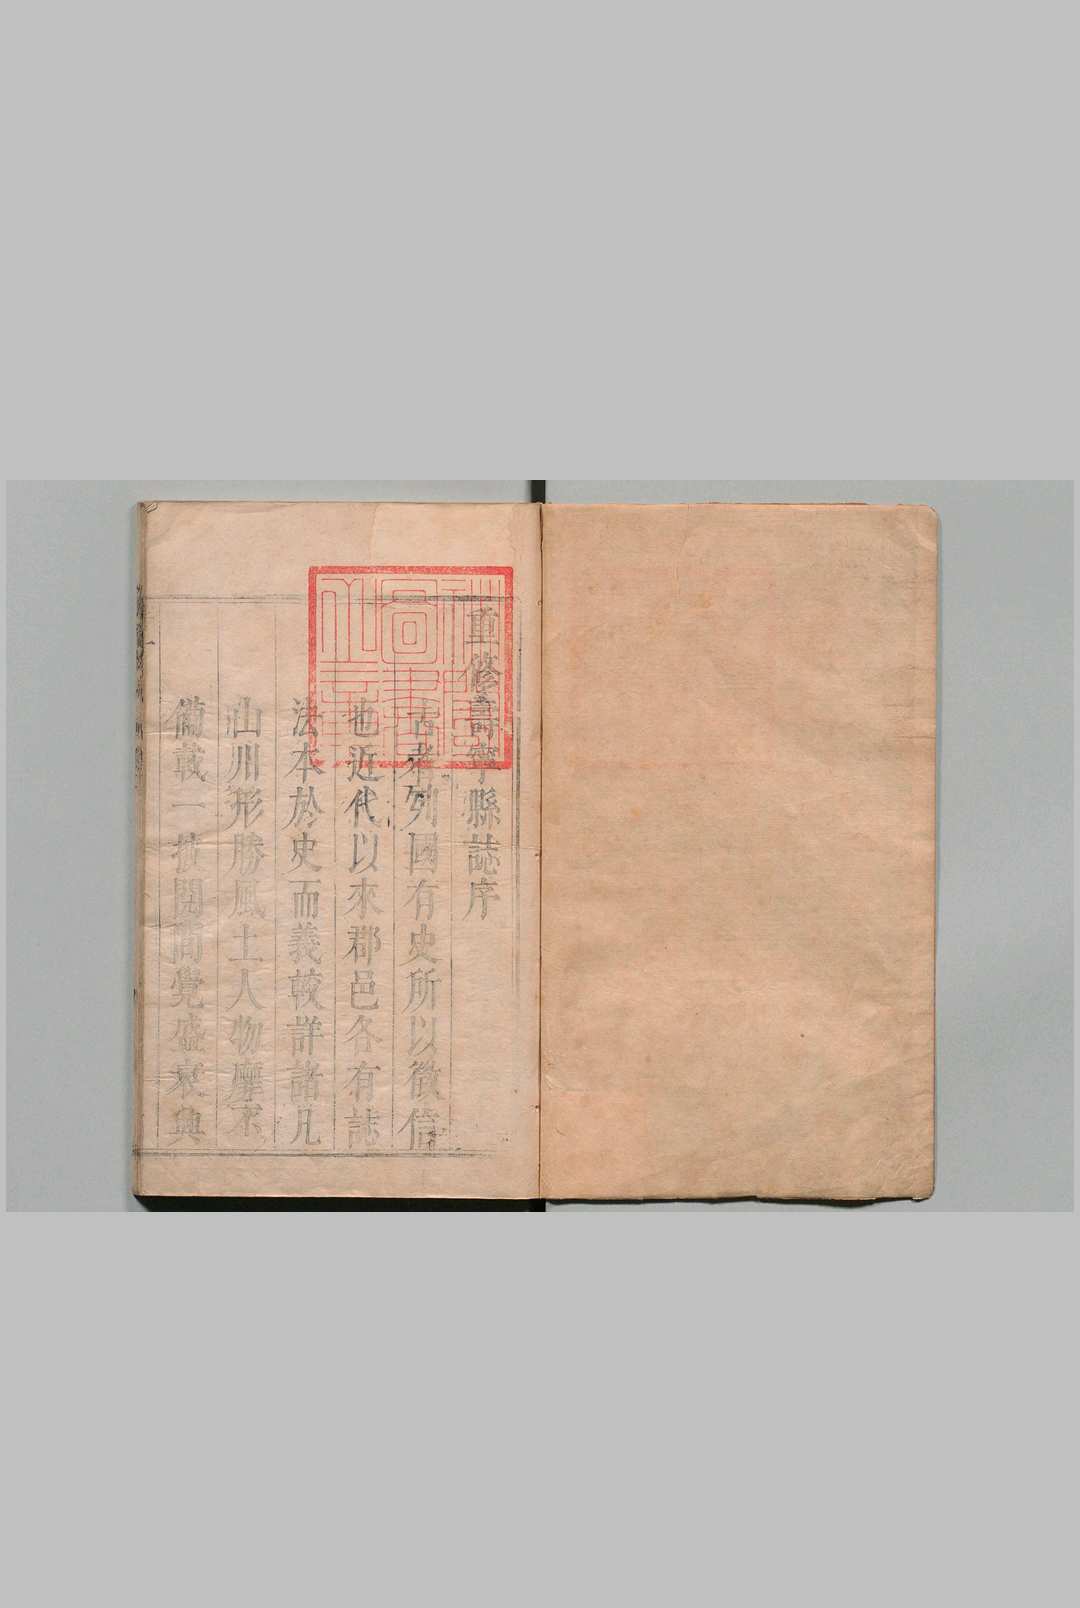 重修壽寧縣誌序
古者列國有史所以徵信
也近代以來郡邑各有誌
法本於史而義較詳諸凡
山川形勝風土人物靡不
備載一披閱間覺盛衰興